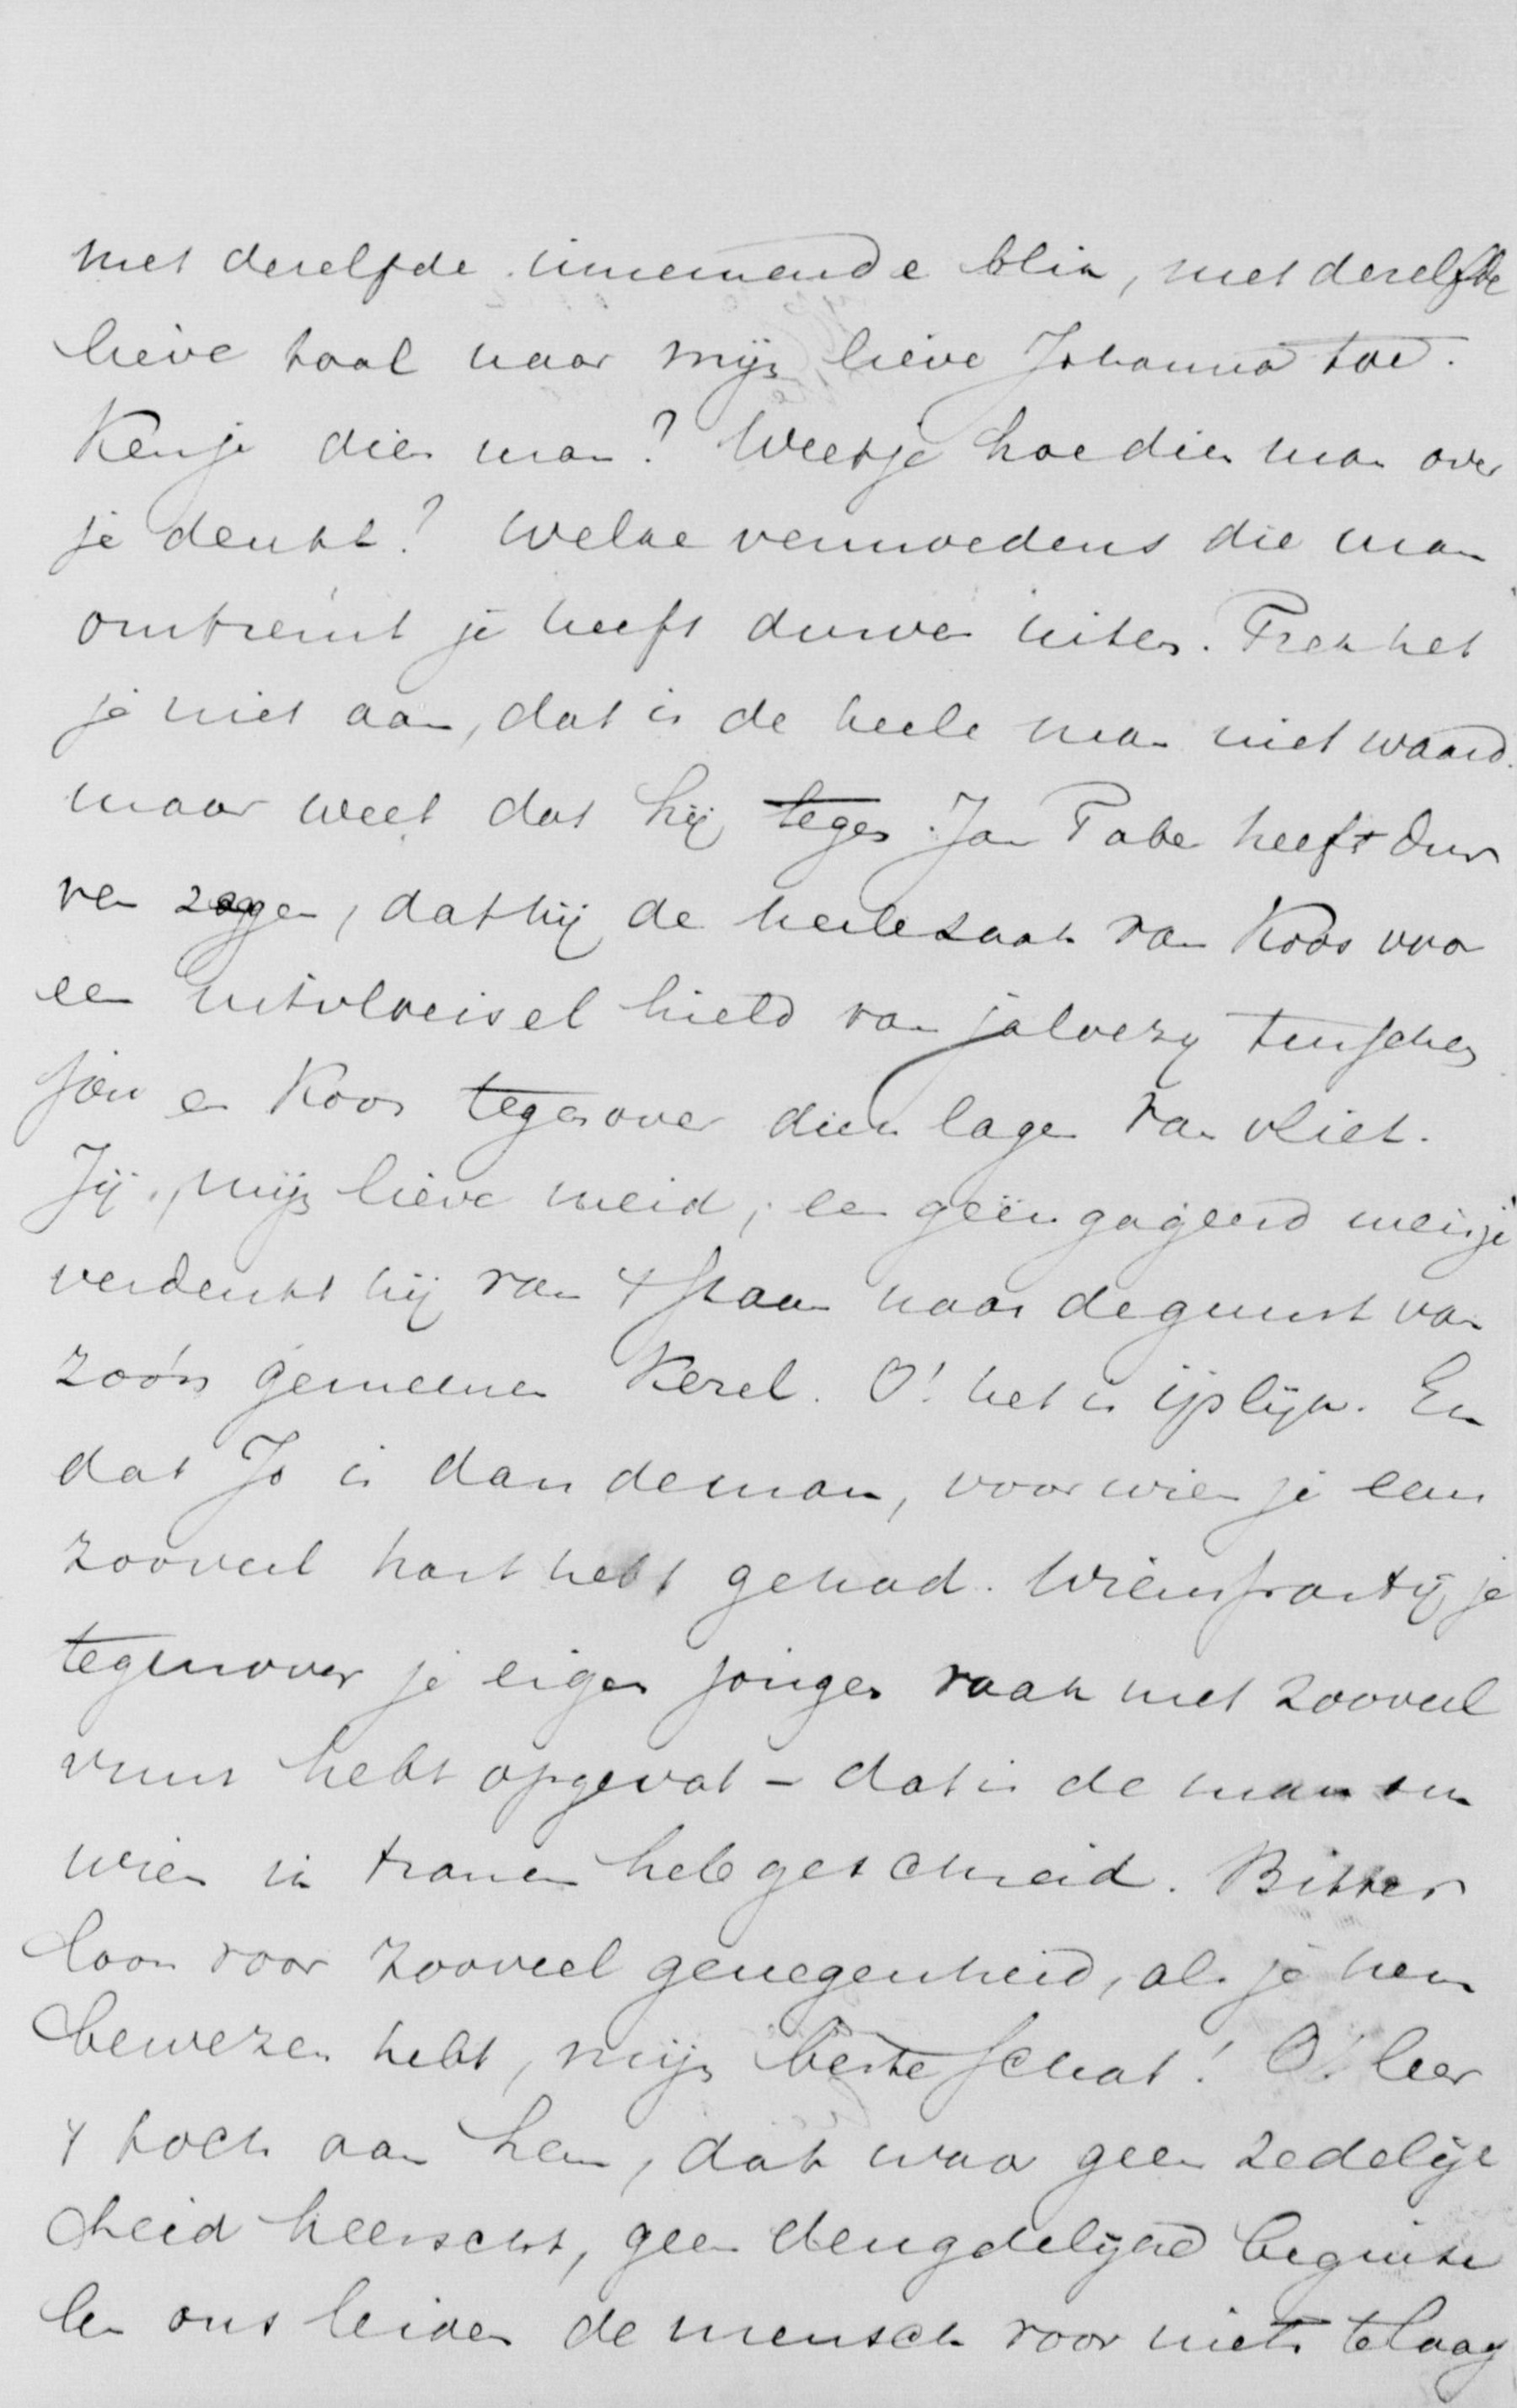 met dezelfde innemende blik, met dezelfde
lieve taal naar mijn lieve Johanna toe.
Ken je dien man? Weet je hoe dien man over
je denkt? Welke vermoedens die man
omtrent je heeft durven uiten. Trek het
je niet aan, dat is de heele man niet waard.
maar weet dat hij tegen Jan Tabe heeft dur
ven zeggen, dat hij de heele zaak van Koos voor
een uitvloeisel hield van jaloezy tusschen
jou en Koos tegenover dien lagen van Vliet.
Jij, mijn lieve meid, een geëngageerd meisje
verdenkt hij van 't staan naar de gunst van
zoó'n gemeenen kerel. O! het is ijslijk. En
dat Jo is dan de man, voor wien je een
zooveel hart hebt gehad. Wiens partij je
tegenover je eigen jongen vaak met zooveel
vuur hebt opgevat – dat is de man om
wien ik tranen heb geschreid. Bitter
loon voor zooveel genegenheid, als je hem
bewezen hebt, mijn beste schat! O! leer
't toch aan hem, dat waar geen zedelijk
heid heerscht, geen deugdelijke beginse
len ons leiden de mensch voor niets te laag